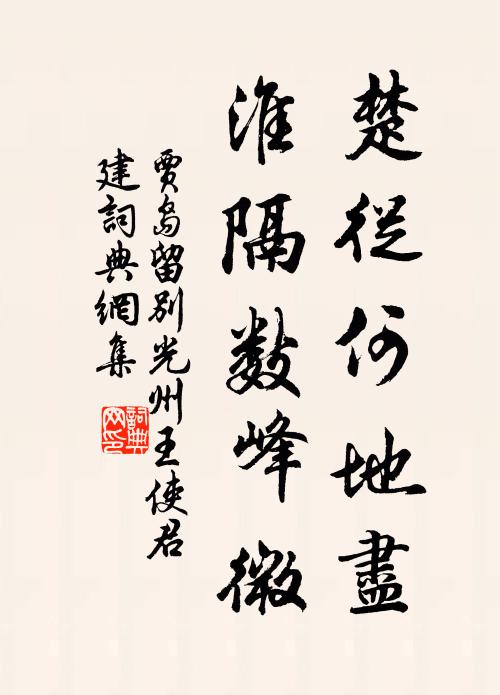 楚從何地盡
淮隔數峰微
賈島留別光州王使君
建詞典網集
詞典
网印